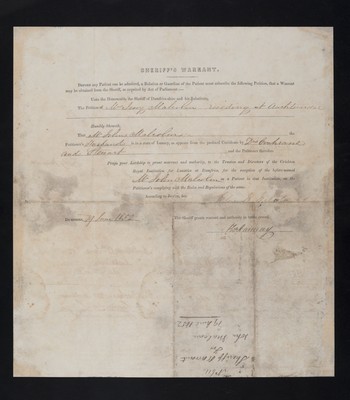 SHERIFF'S WARRANT.
BEFORE any Patient can be admitted, a Relation or Guardian of the Patient must subscribe the following Petition, that a Warrant
may be obtained from the Sheriff, as required by Act of Parliament:—
Unto the Honourable the Sheriff of Dumfries-shire and his Substitutes,
The Petition of Mrs Malcolm residing at
Humbly Sheweth,
That Mr John Malcolm the
Petitioner's Husband has a state of Lunacy, as appears from the prefixed Certificate by Drs
and Stewart and the Petitioner therefore
Prays your Lordship to grant warrant and authority, to the Trustees and Directors of the Crichton
Royal Institution for Lunatics at Dumfries, for the reception of the before-named
Mr John Malcolm as a Patient in that Institution, on the
Petitioner's complying with the Rules and Regulations of the same.
According to Justice, &c.
29 June 1852 The Sheriff grants warrant and authority as above craved.
29 June 1852
John Malcolm
For
Sheriff's Warrant